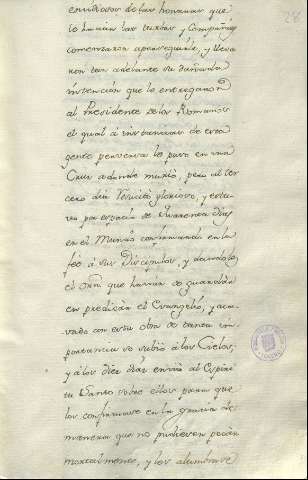 envidiosos de las honrras que
le hacian las turbas, y Compañias
comenzaron a perseguirle, y lleva
ron tan adelante su dañada
intencion que lo entregaron
al Presidente de los Romanos
el qual á instancias de esta
gente perversa lo puso en una
Cruz adonde murió, pero al ter
cero dia resucitó glorioso, y estu
vo por espacio de Quarenta dias
en el Mundo confirmando en la
feé á sus Discipulos, y dandoles
el orn. que havian de guardar
en predicar el Evangelio; y aca
vada con esta obra de tanta im
portancia se subió á los Cielos;
y á los diez dias envió al Espiri
tu Santo sobre ellos para que
los confirmase en la gracia de
manera que no pudiesen pecar
mortalmente, y los alumbrase